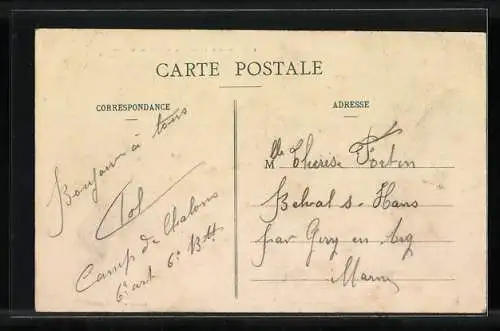 CARTE POSTALE
CORRESPONDANCE
Bonjour à tous
Tol
Camp de Chalons
6e art 6e Btt
ADRESSE
Mlle Thérèse Fortin
Belval s. Hans
par Givry en Arg
Marne